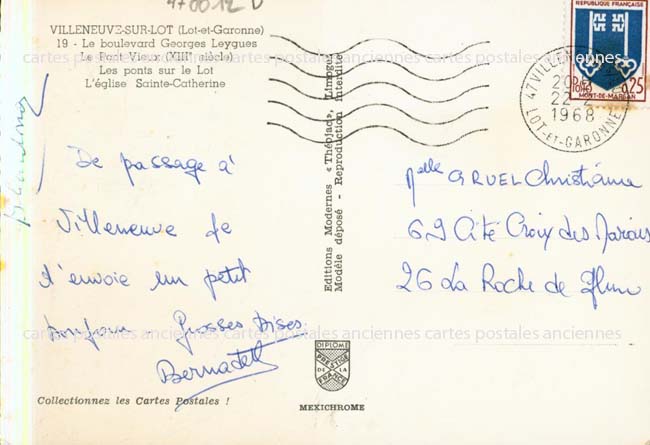 470012 D
VILLENEUVE-SUR-LOT (Lot-et-Garonne)
19 - Le boulevard Georges Leygues
Le Pont-Vieux (XIIIe siècle)
Les ponts sur le Lot
L'église Sainte-Catherine
De passage à
Villeneuve je
t'envoie un petit
bonjour - Grosses bises
Bernadette
Collectionnez les Cartes Postales !
Editions Modernes « Théojac », Limoges
Modèle déposé - Reproduction interdite
DIPLOME
PRESTIGE
DE LA
FRANCE
MEXICHROME
REPUBLIQUE FRANÇAISE
0,25
MONT-DE-MARSAN
47 VILLEN
22-2
1968
LOT-ET-GARONNE
Melle GRUEL Christiane
69 Cité Croix des Marais
26 La Roche de Glun
cartes postales anciennes cartes postales anciennes cartes postales anciennes